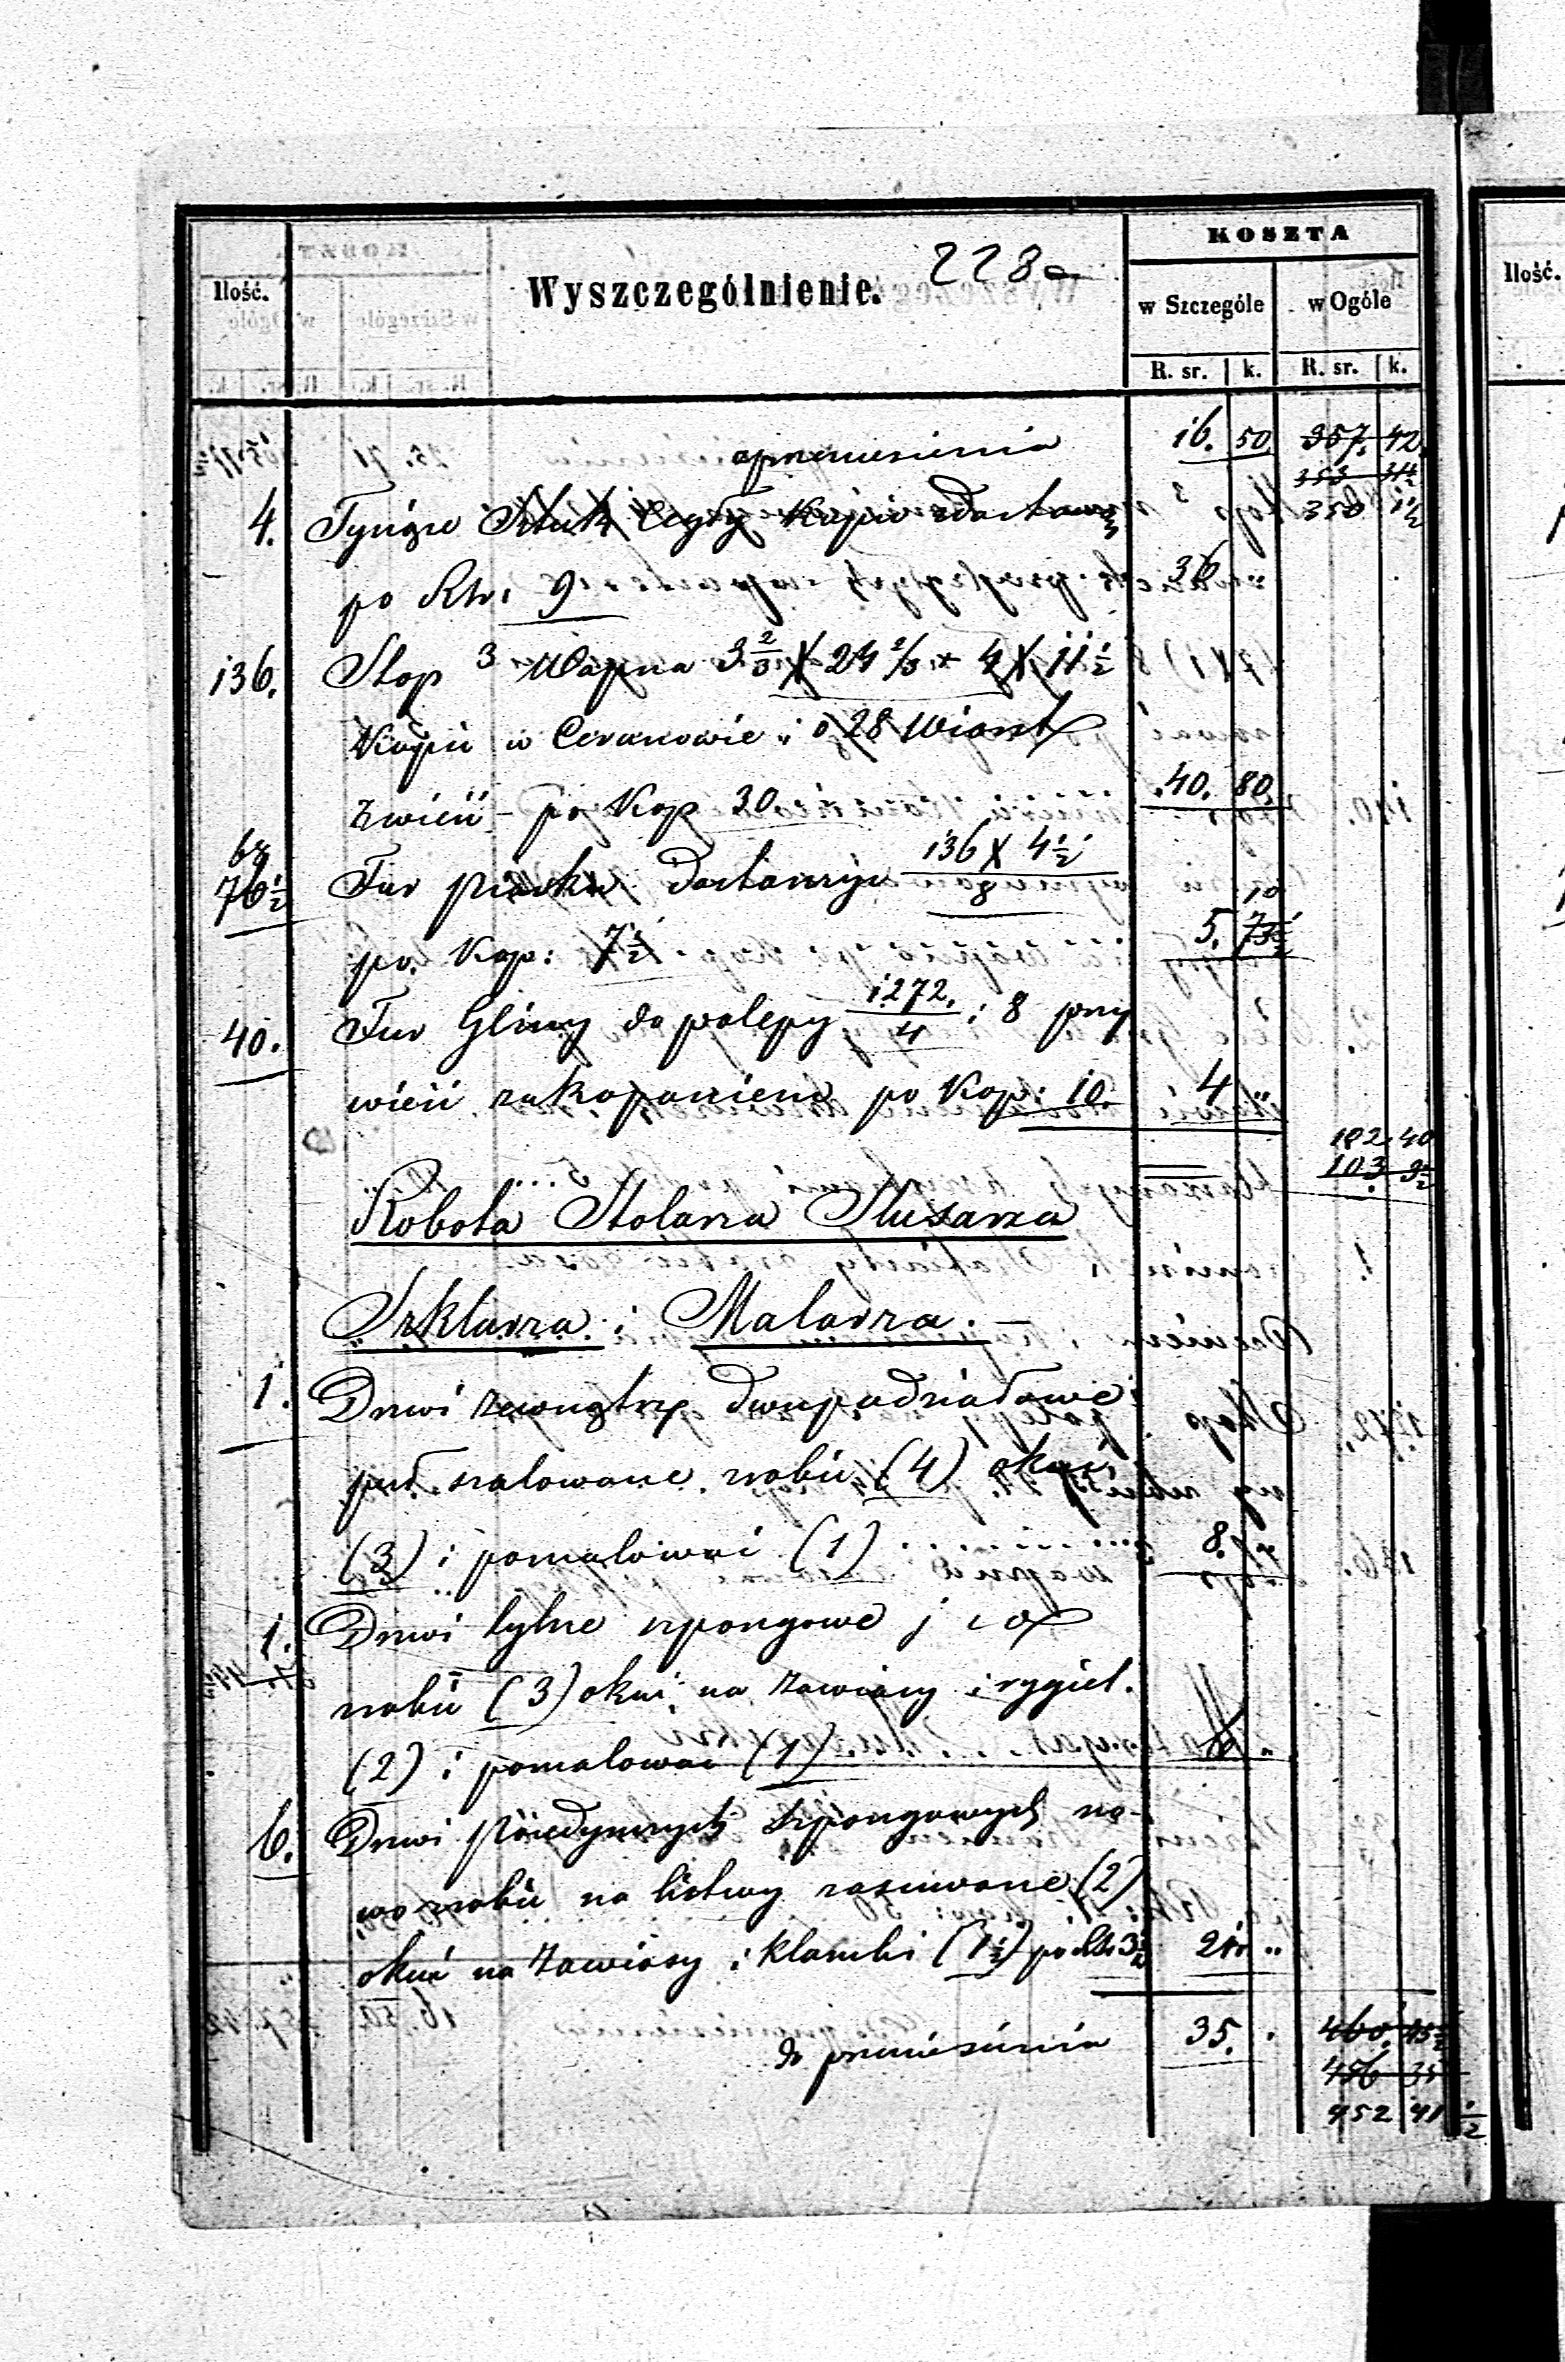 223a
KOSZTA
Ilość. Wyszczególnienie. w Szczególe w Ogóle
R. sr. k. R. sr. k.
z przeniesienia 16. 50 357. 42
353 31½
4. Tysiące Sztuk Cegły Kupić z dostawą 350 1½
po Rsr. 9 36 "
136. Stop 3 Wapna 3 2/3 X 24 2/3 + 4 X 11½
Kupić w Ceranowie i o 28 Wiorst
zwieść - po Kop 30 40. 80
68
76½ Fur piasku dostawić 136 X 4½ / 8 10
po. Kop: 7½ 5. 73½
40. Fur Gliny do polepy 1272. / 4 i 8 przy
wieść z ukopaniem po Kop: 10. 4 "
102. 40
103. 3½
Robota Stolarza Slusarza
Szklarza i Malarza. -
1. Drzwi zewnątrz dwupodziałowe
pół zalowane zrobić (4) okuć
(3) i pomalować (1) 8. "
1. Drzwi tylne szpongowe
zrobić (3) okuć na zawiasy i rygiel.
(2) i pomalować (1) 6 "
6. Drzwi pojedynczych szpongowych no-
wo zrobić na listwy zasuwane (2)
okuć na zawiasy i klamki (1½) po Rs 3½ 21. "
do przeniesienia 35. " 460. 45½
456 35
452 41½
Ilość.